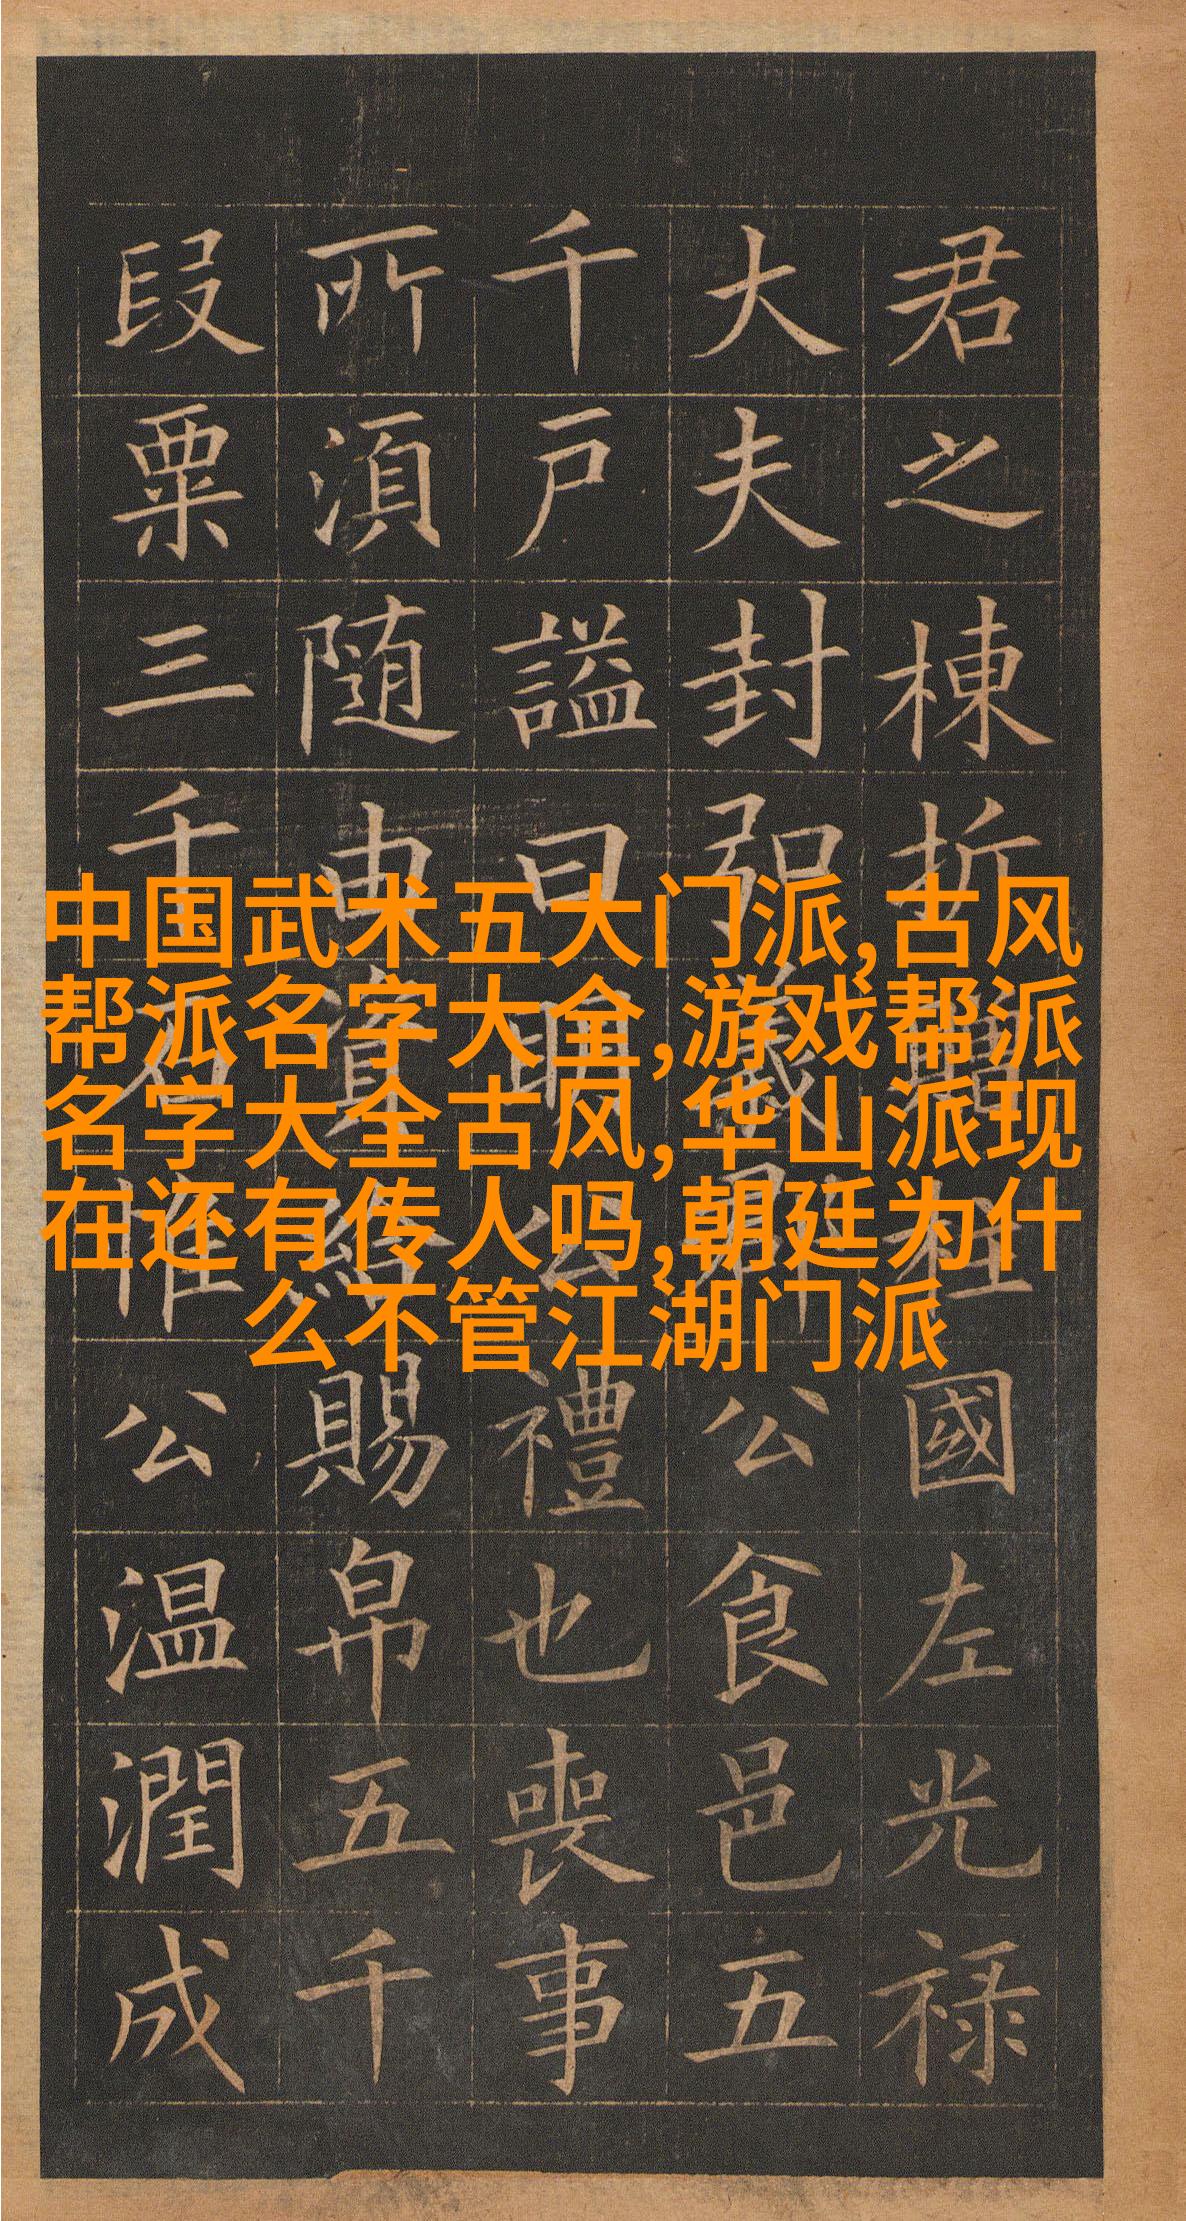 中国武术五大门派,古风
帮派名字大全,游戏帮派
名字大全古风,华山派现
在还有传人吗,朝廷为什
么不管江湖门派
君之棟折贈柱國左光禄
大夫封弘義郡公食邑五
千戸謚曰明公禮也喪事
所湏随由資給賜帛五千
段粟三千石惟公温潤成